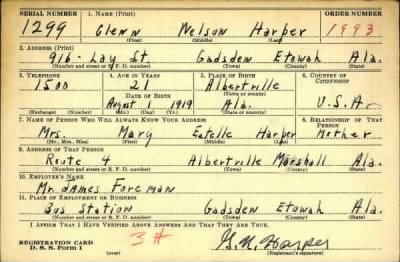 SERIAL NUMBER 1. NAME (Print) ORDER NUMBER
1299 Glenn Nelson Harper 1993
(First) (Middle) (Last)
2. ADDRESS (Print)
916 - Lay St. Gadsden Etowah Ala.
(Number and street or R. F. D. number) (Town) (County) (State)
3. TELEPHONE 4. AGE IN YEARS 5. PLACE OF BIRTH 6. COUNTRY OF CITIZENSHIP
1500 21 Albertville
DATE OF BIRTH (Town or county)
August 1 1919 Ala. U.S.A.
(Exchange) (Number) (Mo.) (Day) (Yr.) (State or country)
7. NAME OF PERSON WHO WILL ALWAYS KNOW YOUR ADDRESS 8. RELATIONSHIP OF THAT PERSON
Mrs. Mary Estelle Harper Mother
(Mr., Mrs., Miss) (First) (Middle) (Last)
9. ADDRESS OF THAT PERSON
Route 4 Albertville Marshall Ala.
(Number and street or R. F. D. number) (Town) (County) (State)
10. EMPLOYER'S NAME
Mr. James Foreman
11. PLACE OF EMPLOYMENT OR BUSINESS
Bus Station Gadsden Etowah Ala.
(Number and street or R. F. D. number) (Town) (County) (State)
I AFFIRM THAT I HAVE VERIFIED ABOVE ANSWERS AND THAT THEY ARE TRUE.
REGISTRATION CARD
D. S. S. Form 1 G. N. Harper
(Registrant's signature)